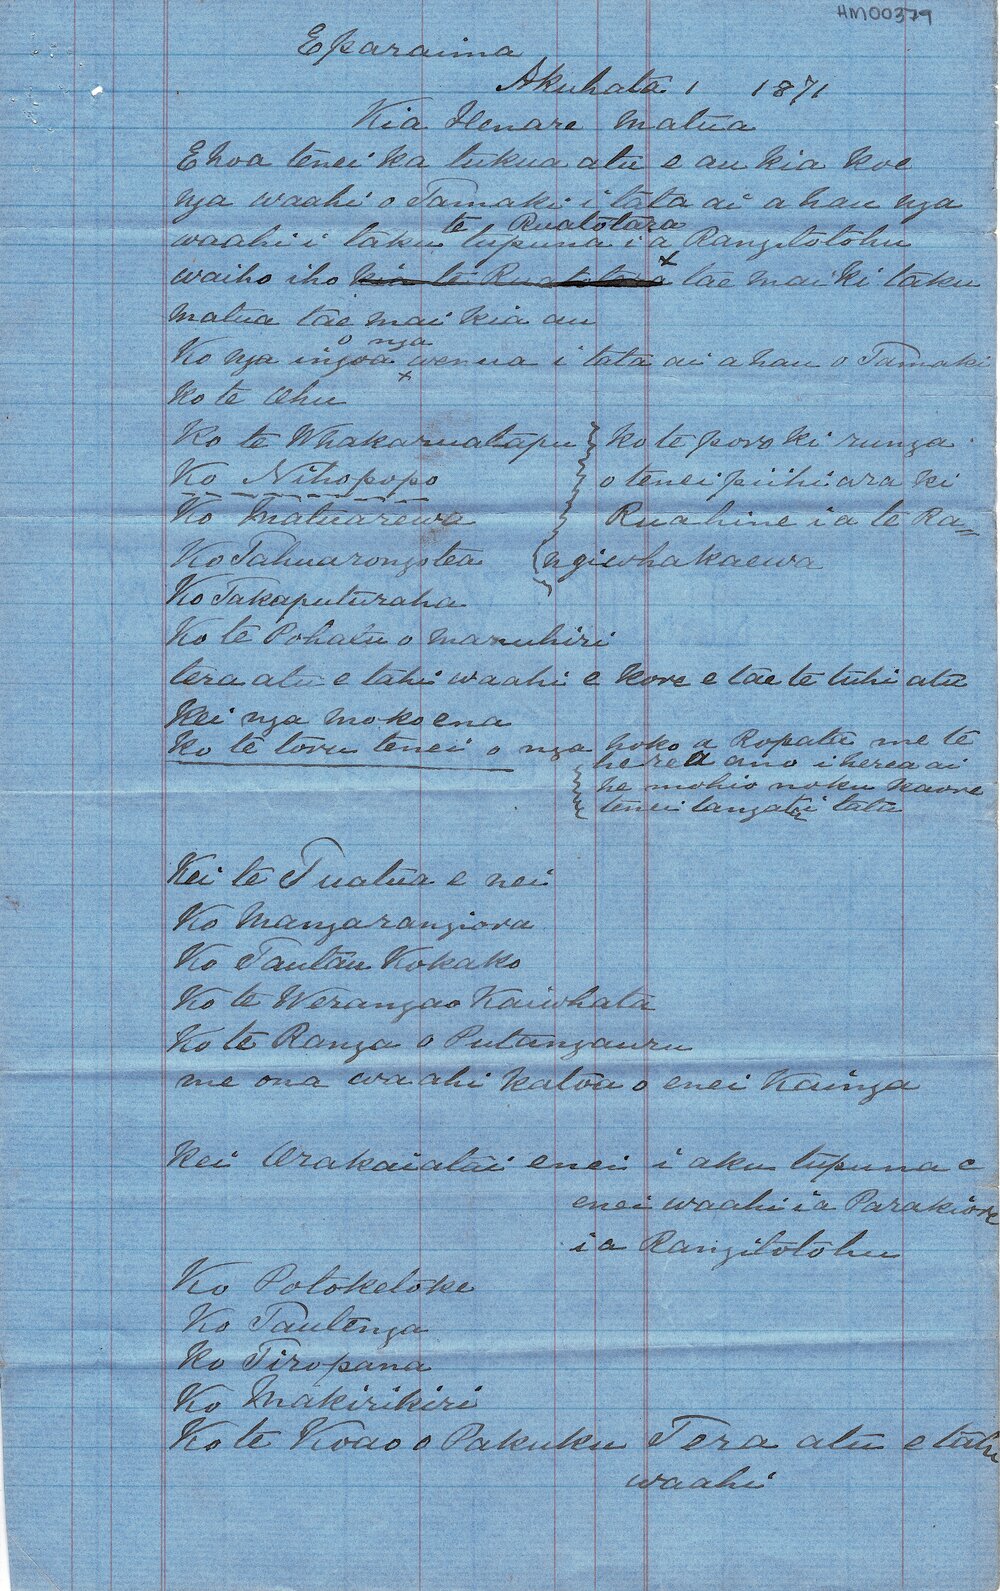 HM00379
Eparaima
Akuhata 1 1871
Kia Henare Matua
E hoa tenei ka tukua atu e au kia koe
nga waahi o Tamaki i tata ai a hau nga
te Ruatotara
waahi i taku tupuna i a Rangitotohu
waiho iho kia te Ruatotara tae mai ki taku
matua tae mai kia au
o nga
Ko nga ingoa wenua i tata ai a hau o Tamaki
ko te Ohu
Ko te Whakaruatapu ko te poro ki runga
Ko Nihopopo o tenei piihi ara ki
Ko Matuarewa Ruahine i a te Ra=
Ko Tahuarongotea ngiwhakaewa
Ko Takaputuraha
Ko te Pohatu o Maruhiri
tera atu e tahi waahi e kore e tae te tuhi atu
kei nga moko ena
ko te toru tenei o nga hoko a Ropatu me te
herea ano i herea ai
he mohio noku kaore
tenei tangata i tata
Kei te Tuatua e nei
Ko Mangarangiora
Ko Tautau Kokako
Ko te Werangao Kaiwhata
Ko te Ranga o Putangauru
me ona waahi katoa o enei Kainga
Kei Orakaiatai enei i aku tupuna e
enei waahi i a Parakiore
i a Rangitotohu
Ko Potoketoke
Ko Tautenga
Ko Tiropana
Ko Makirikiri
Ko te Koao o Pakuku Tera atu e tahi
waahi